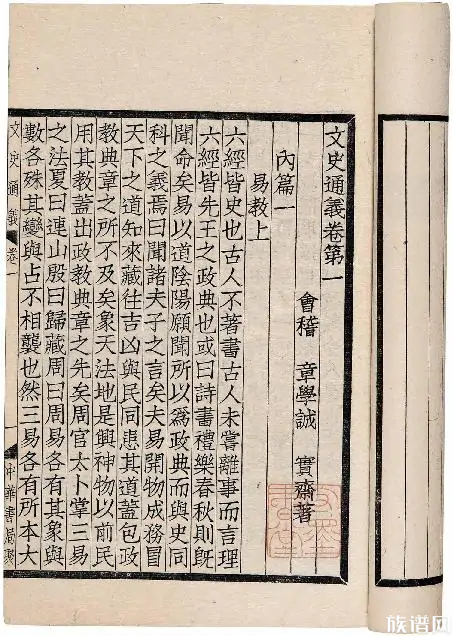 文史通義卷第一
會稽 章學誠 實齋著
內篇一
易教上
六經皆史也古人不著書古人未嘗離事而言理
六經皆先王之政典也或曰詩書禮樂春秋則既
聞命矣易以道陰陽願聞所以爲政典而與史同
科之義焉曰聞諸夫子之言矣夫易開物成務冒
天下之道知來藏往吉凶與民同患其道蓋包政
教典章之所不及矣象天法地是興神物以前民
用其教蓋出政教典章之先矣周官太卜掌三易
之法夏曰連山殷曰歸藏周曰周易各有其象與
數各殊其變與占不相襲也然三易各有所本大
文史通義 卷一
中華書局聚
族谱网